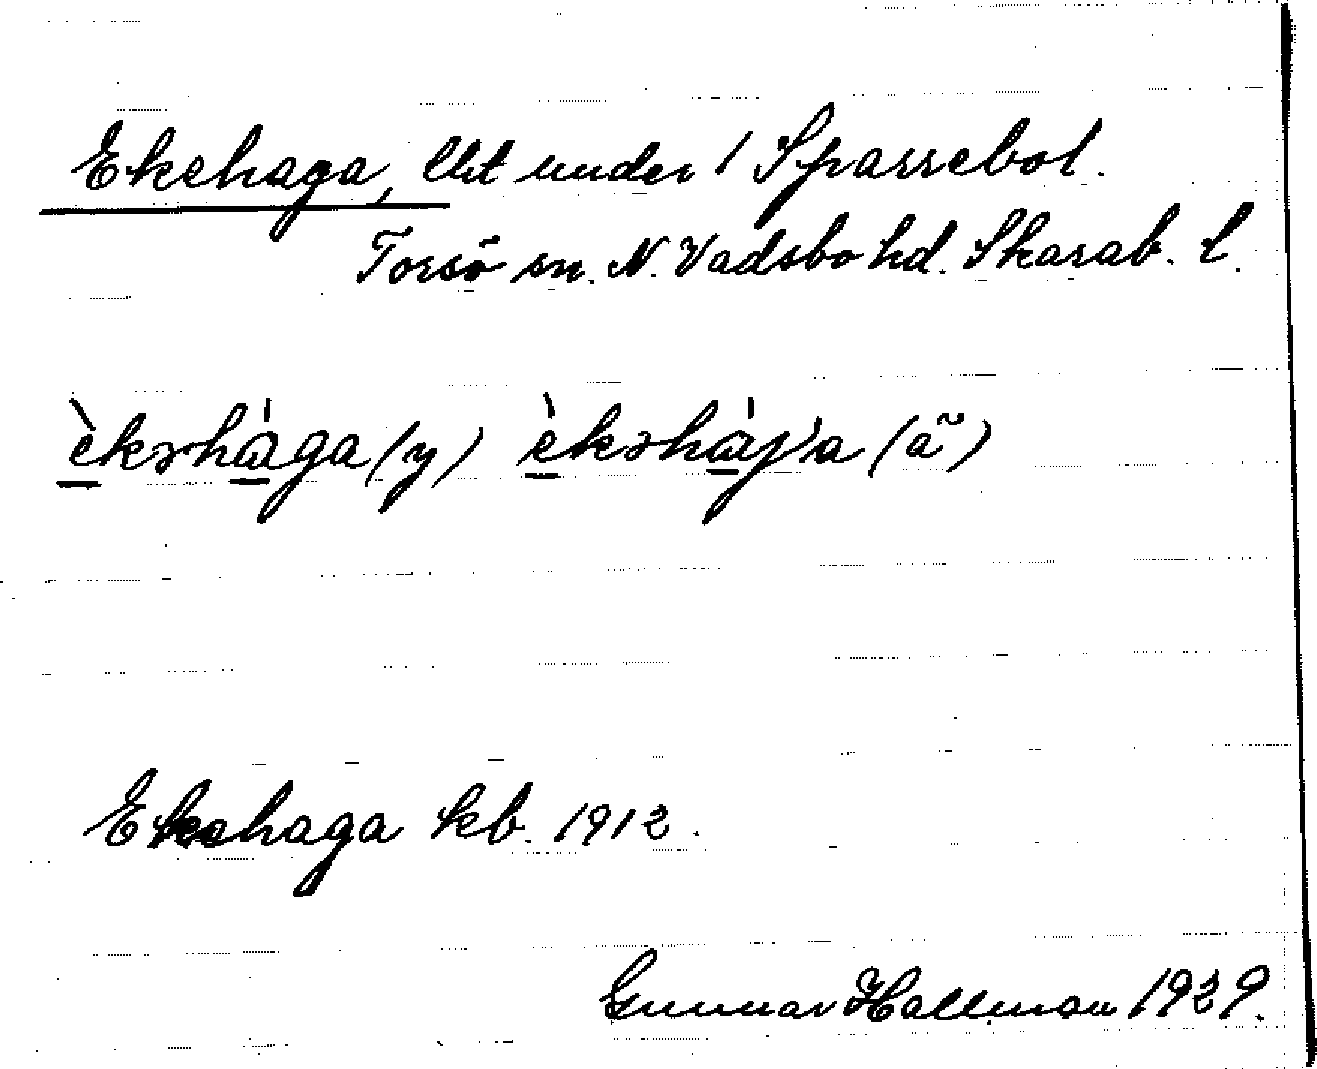 Ekehaga, lht under 1 Sparrebol.
Torsö sn. N. Vadsbo hd. Skarab. l.
èkəhàga (y) èkəhàga (ã)
Ekehaga kb. 1912.
Gunnar Hallman 1929.